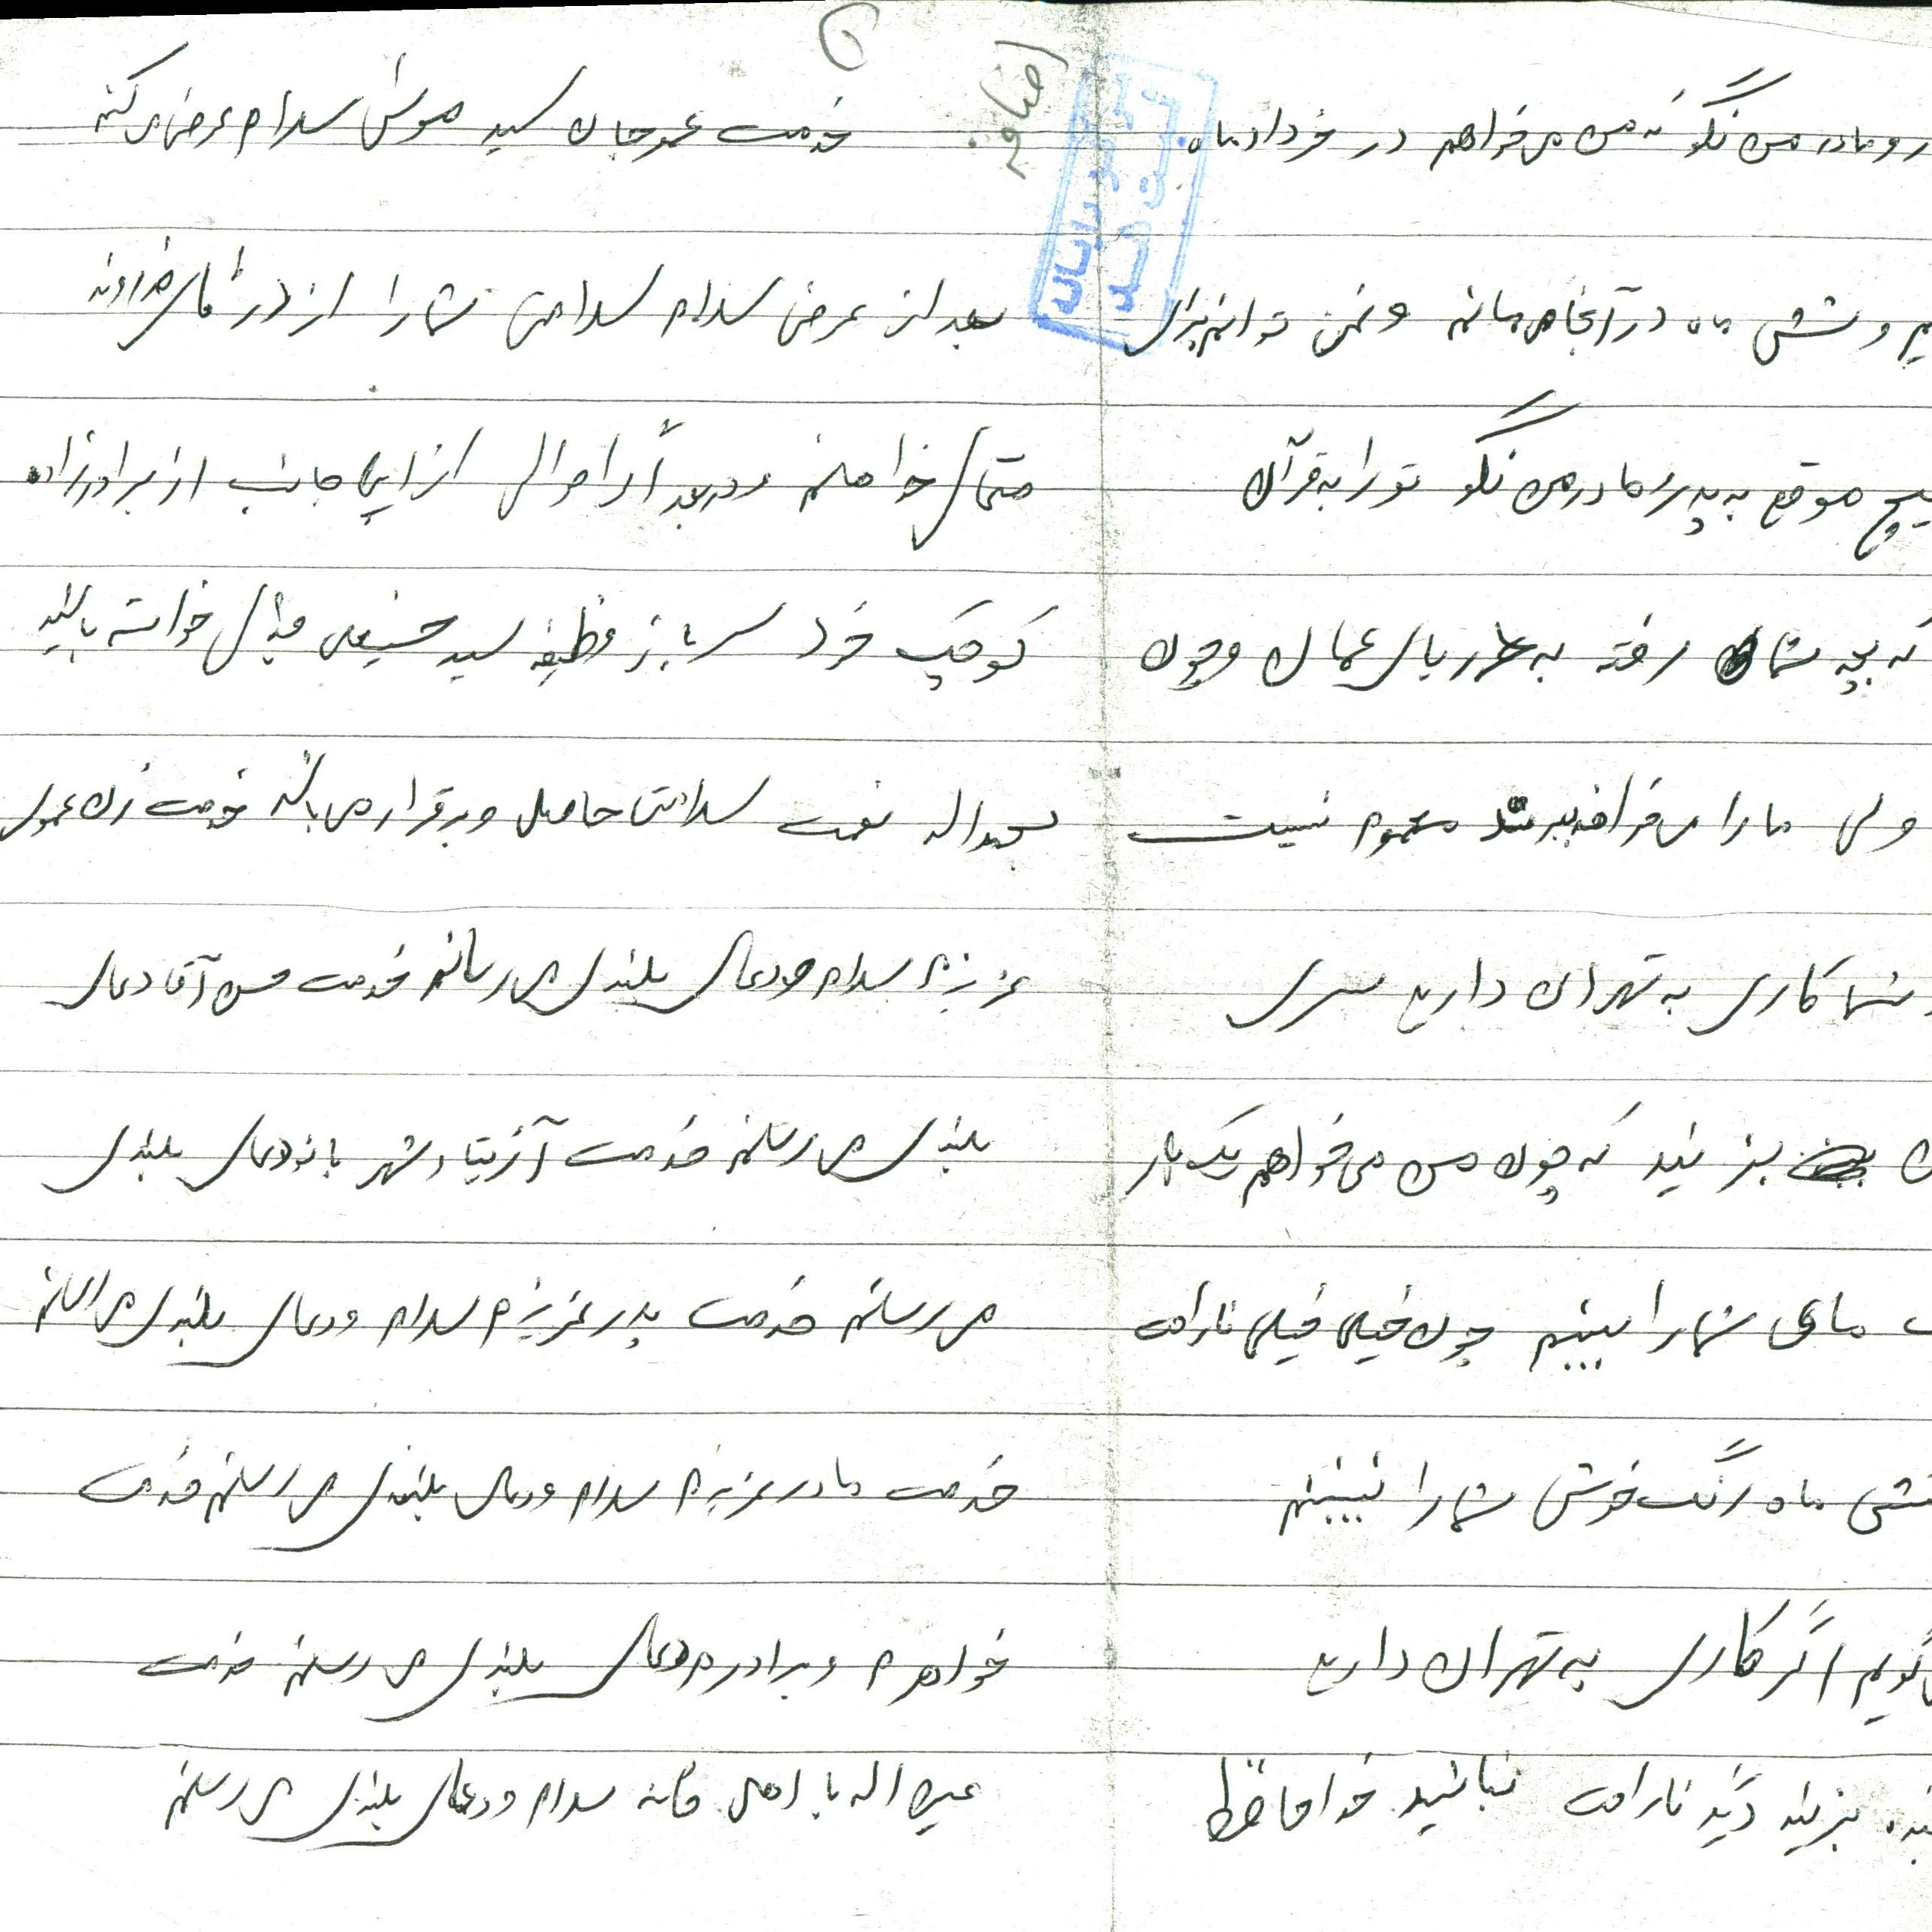 رو مادر من نگو که من می خواهم در خرداد ماه
یم و شش ماه در آنجا می مانم و نمی توانم برای
هیچ موقع به پدر و مادر من نگو تو را به قرآن
که بچه شما رفته به دریای عمان و چون
ولی ما را می خواهند ببرند معلوم نیست
شما کاری به تهران دارید سری
بزنید که چون من می خواهم یک بار
مای شما را ببینم چون خیلی خیلی ناراحت
شش ماه رنگ خوش شما را نبینم
گویم اگر کاری به تهران دارید
بزنید دگید ناراحت نباشید خداحافظ
۵
اضافه
خدمت عمو جان سید موسی سلام عرض می کنم
بعد از عرض سلام سلامتی شما را از درگاه خداوند
متعال خواهانم و در بعد اگر احوالی از این جانب از برادرزاده
کوچک خود سرباز وظیفه سید حسینعلی خواسته باشید
بحمداله نعمت سلامتی حاصل و برقرار می باشد خدمت زن عموی
عزیزم سلام و دعای بلندی می رسانم خدمت حسن آقا دعای
بلندی می رسانم خدمت آزیتا و شهربانو دعای بلندی
می رسانم خدمت پدر عزیزم سلام و دعای بلندی می رسانم
خدمت مادر عزیزم سلام و دعای بلندی می رسانم خدمت
خواهرم و برادرم دعای بلندی می رسانم خدمت
عین اله با اهل خانه سلام و دعای بلندی می رسانم